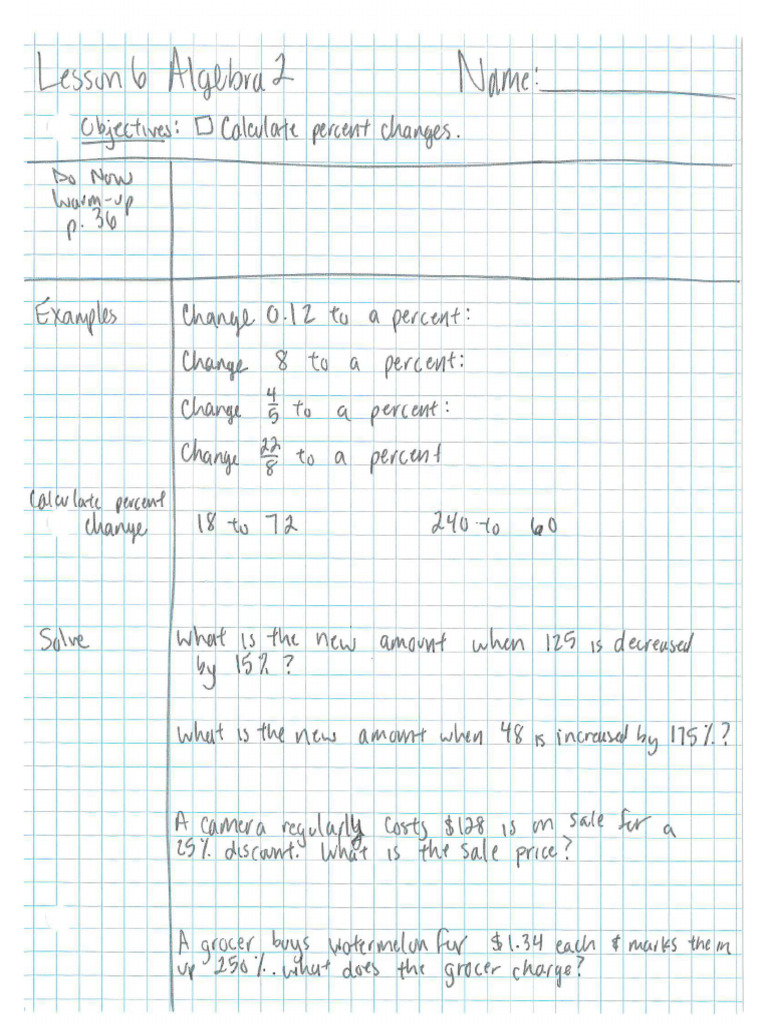 Lesson 6 Algebra 2 Name:
Objectives: Calculate percent changes.
Do Now
Warm-up
p. 36
Examples
Change 0.12 to a percent:
Change 8 to a percent:
Change 4/5 to a percent:
Change 22/8 to a percent
Calculate percent
change
18 to 72 240 to 60
Solve
What is the new amount when 125 is decreased
by 15%?
What is the new amount when 48 is increased by 175%?
A camera regularly costs $128 is on sale for a
25% discount. What is the sale price?
A grocer buys watermelon for $1.34 each & marks them
up 250%. what does the grocer charge?